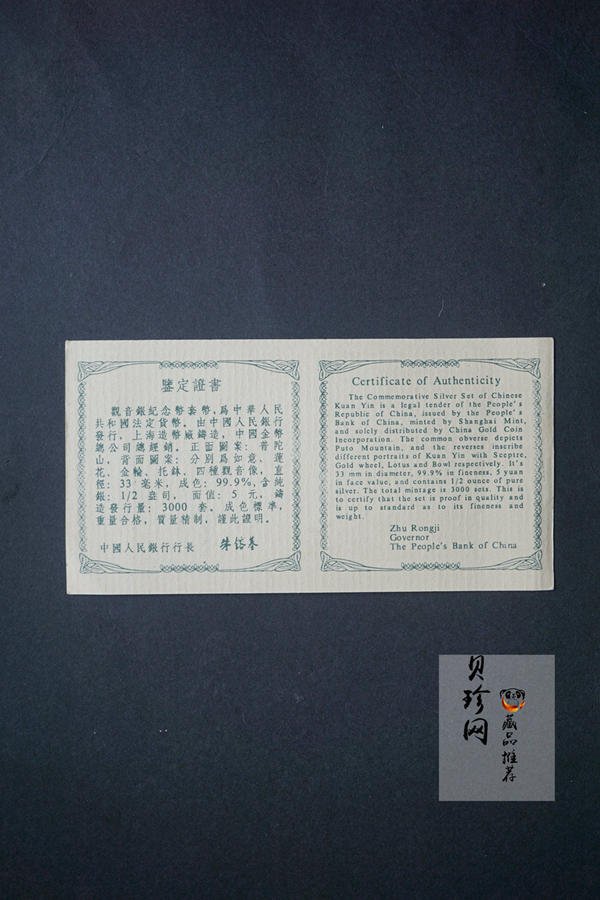 鑒定證書
觀音銀紀念幣套幣，爲中華人民
共和國法定貨幣。由中國人民銀行
發行，上海造幣廠鑄造，中國金幣
總公司總經銷。正面圖案：普陀
山，背面圖案：分別爲如意、蓮
花、金輪、托鉢，四種觀音像，直
徑：33毫米，成色：99.9%，含純
銀：1/2 盎司，面值：5元，鑄
造發行量：3000 套。成色標準，
重量合格，質量精制，謹此證明。
中國人民銀行行長 朱鎔基
Certificate of Authenticity
The Commemorative Silver Set of Chinese
Kuan Yin is a legal tender of the People's
Republic of China, issued by the People's
Bank of China, minted by Shanghai Mint,
and solely distributed by China Gold Coin
Incorporation. The common obverse depicts
Puto Mountain, and the reverses inscribe
different portraits of Kuan Yin with Sceptre,
Gold wheel, Lotus and Bowl respectively. It's
33 mm in diameter, 99.9% in fineness, 5 yuan
in face value, and contains 1/2 ounce of pure
silver. The total mintage is 3000 sets. This is
to certify that the set is proof in quality and
is up to standard as to its fineness and
weight.
Zhu Rongji
Governor
The People's Bank of China
贝珍网
藏品推荐